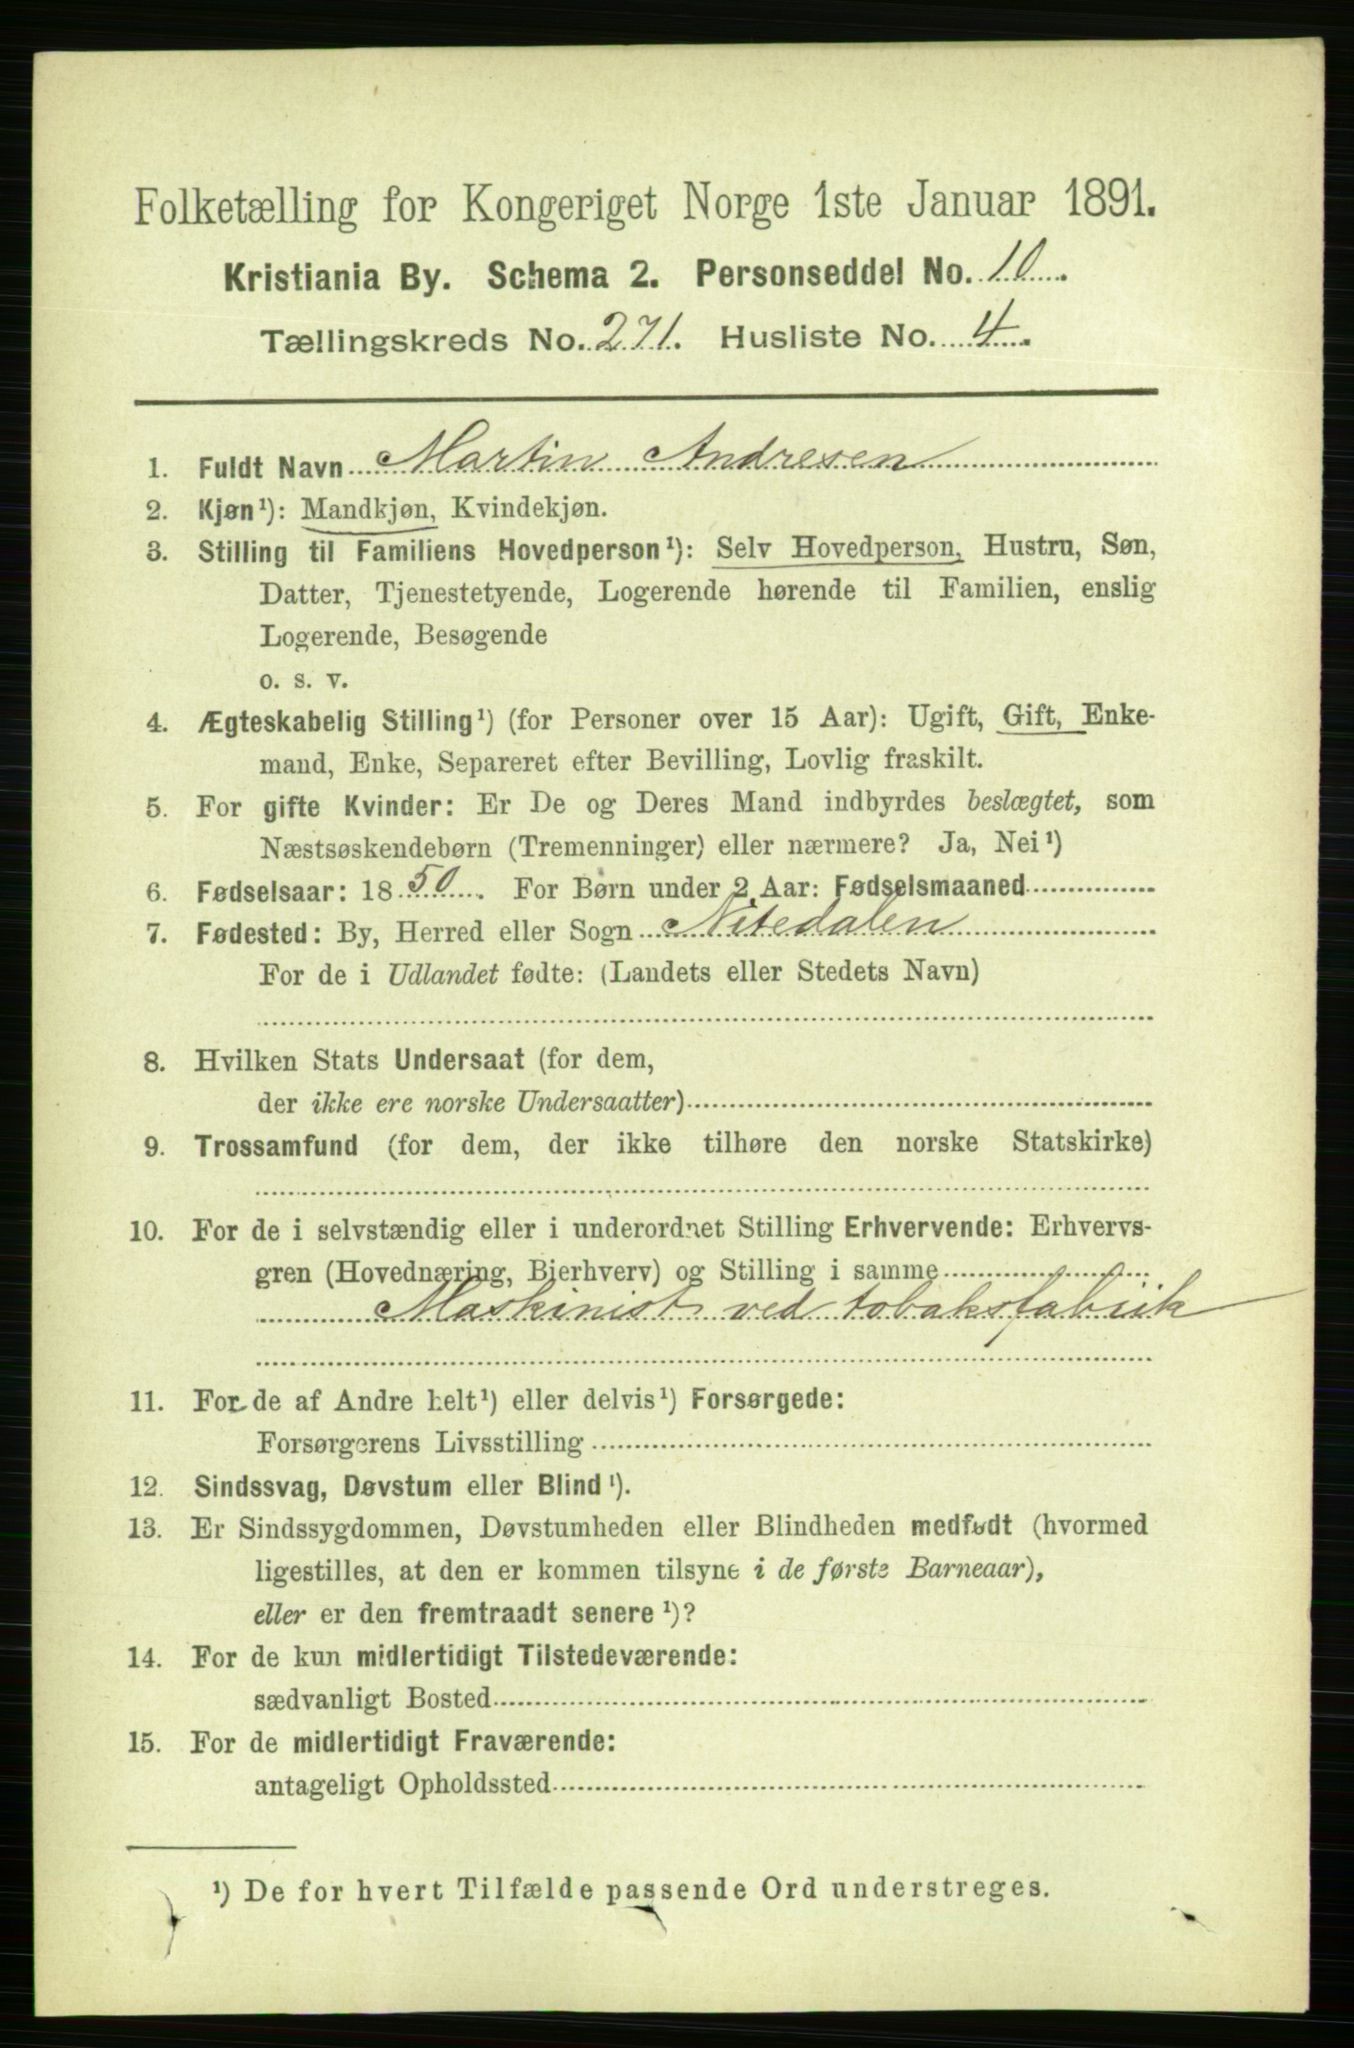 Folketælling for Kongeriget Norge 1ste Januar 1891.
Kristiania By. Schema 2. Personseddel No. 10.
Tællingskreds No. 271. Husliste No. 4.
1. Fuldt Navn Martin Andresen
2. Kjøn¹): Mandkjøn, Kvindekjøn.
3. Stilling til Familiens Hovedperson¹): Selv Hovedperson, Hustru, Søn,
Datter, Tjenestetyende, Logerende hørende til Familien, enslig
Logerende, Besøgende
o. s. v.
4. Ægteskabelig Stilling¹) (for Personer over 15 Aar): Ugift, Gift, Enke-
mand, Enke, Separeret efter Bevilling, Lovlig fraskilt.
5. For gifte Kvinder: Er De og Deres Mand indbyrdes beslægtet, som
Næstsøskendebørn (Tremenninger) eller nærmere? Ja, Nei¹)
6. Fødselsaar: 1850. For Børn under 2 Aar: Fødselsmaaned
7. Fødested: By, Herred eller Sogn Nitedalen
For de i Udlandet fødte: (Landets eller Stedets Navn)
8. Hvilken Stats Undersaat (for dem,
der ikke ere norske Undersaatter)
9. Trossamfund (for dem, der ikke tilhøre den norske Statskirke)
10. For de i selvstændig eller i underordnet Stilling Erhvervende: Erhvervs-
gren (Hovednæring, Bierhverv) og Stilling i samme
Maskinist ved tobaksfabrik
11. For de af Andre helt¹) eller delvis¹) Forsørgede:
Forsørgerens Livsstilling
12. Sindssvag, Døvstum eller Blind¹).
13. Er Sindssygdommen, Døvstumheden eller Blindheden medfødt (hvormed
ligestilles, at den er kommen tilsyne i de første Barneaar),
eller er den fremtraadt senere¹)?
14. For de kun midlertidigt Tilstedeværende:
sædvanligt Bosted
15. For de midlertidigt Fraværende:
antageligt Opholdssted
¹) De for hvert Tilfælde passende Ord understreges.